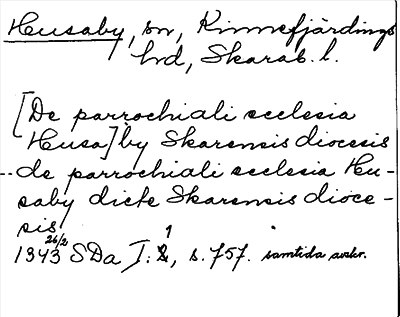 Husaby, sn, Kinnefjärdings
hrd, Skarab. l.
[De parrochiali ecclesia
Husa]by Skarensis diocesis
-- de parrochiali ecclesia Hu-
saby dicte Skarensis dioce-
sis
26/2 1
1343 SDa I: 2, s. 757. samtida avskr.